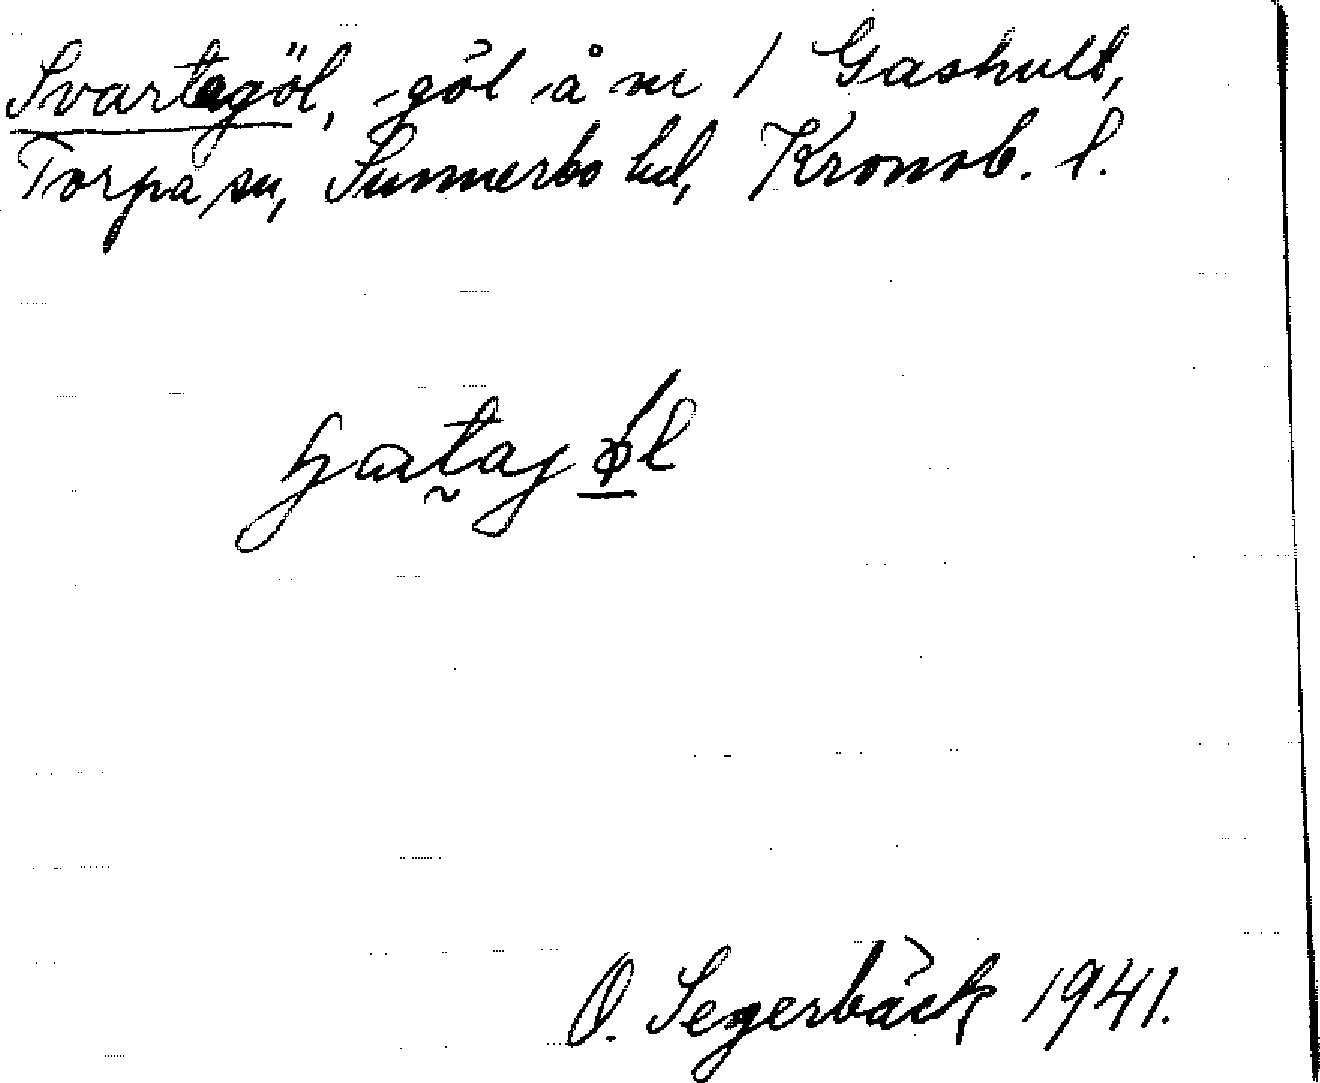 Svartagöl, göl å nr 1 Gashult,
Torpa sn, Sunnerbo hd, Kronob. l.
O. Segerbäck 1941.